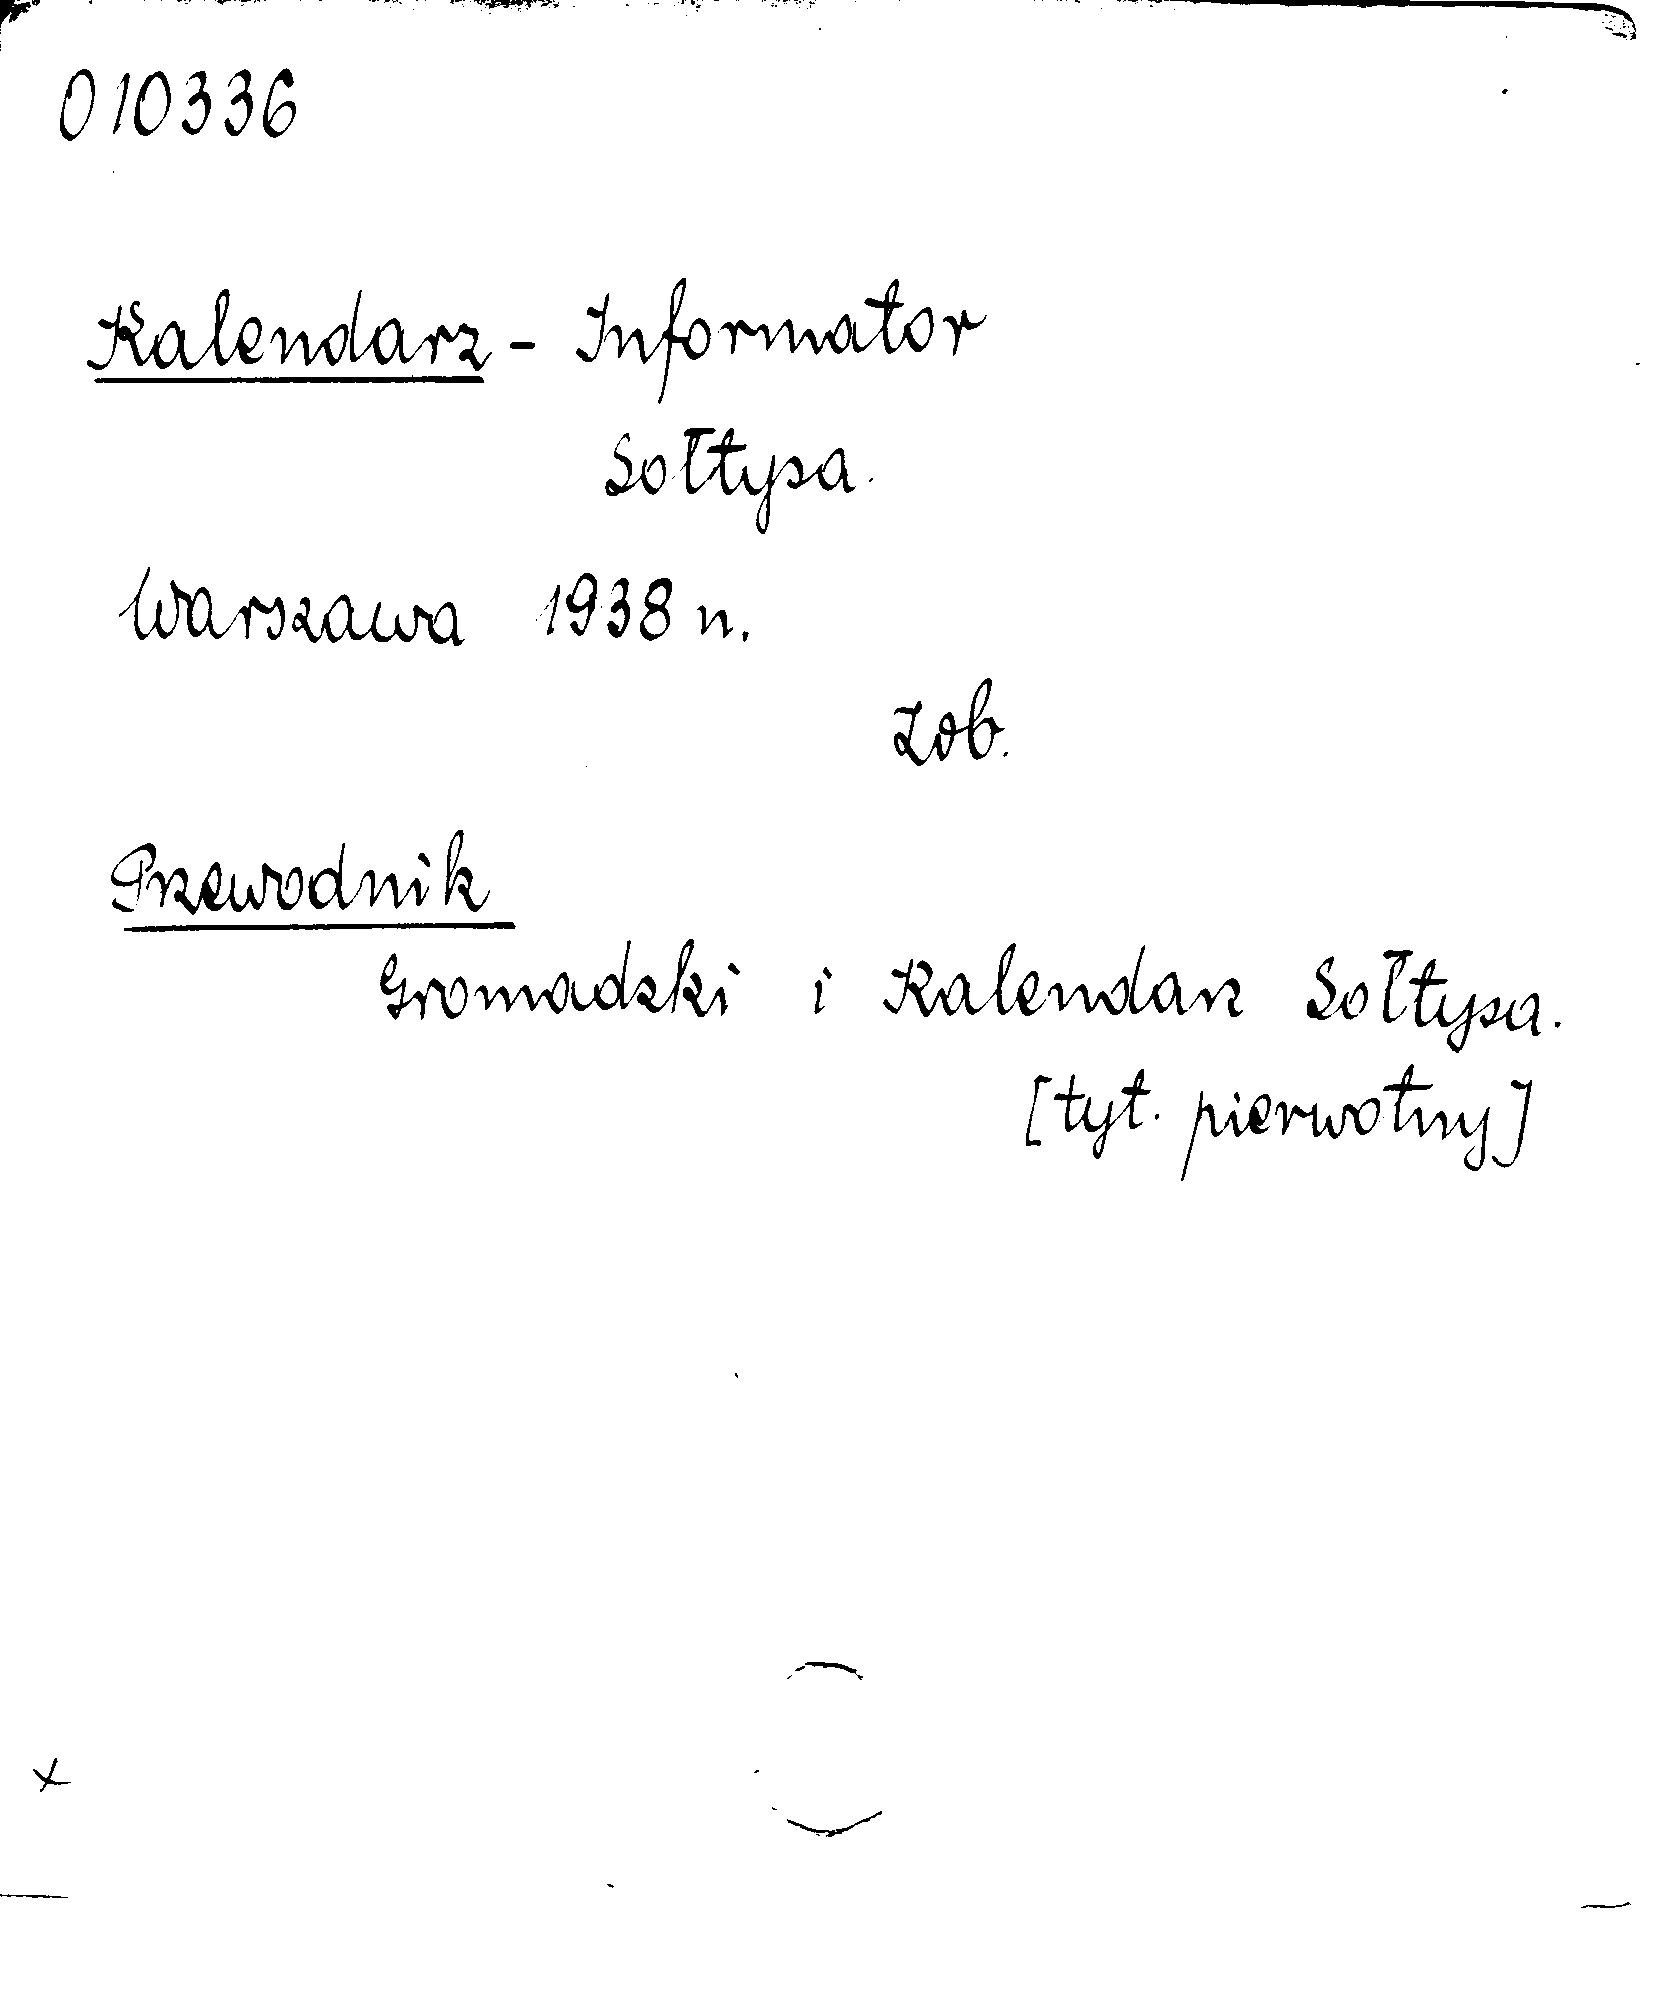 010336
Kalendarz - Informator
Sołtysa.
Warszawa 1938 n.
Zob.
Przewodnik
Gromadzki i Kalendarz Sołtysa.
[tyt. pierwotny]
x